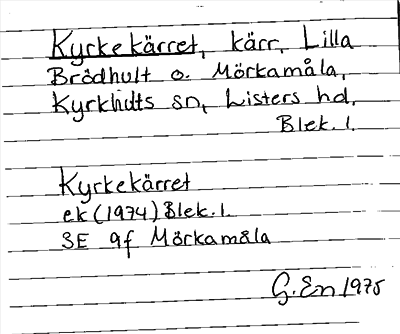 Kyrkekärret, kärr, Lilla
Brödhult o. Mörkamåla,
Kyrkhults sn, Listers hd,
Blek. l.
Kyrkekärret
ek (1974) Blek. l.
SE 9f Mörkamåla
G. En 1975